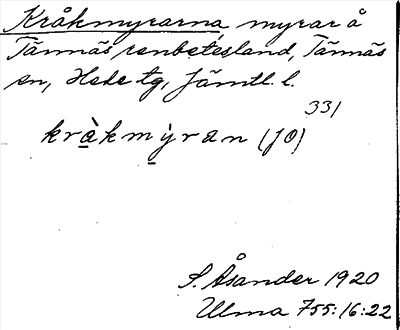 Kråkmyrarna, myrar å
Tännäs renbetesland, Tännäs
sn, Hede tg, Jämtl. l.
331
kràkmýran (JO)
S. Åsander 1920
Ulma 755:16:22